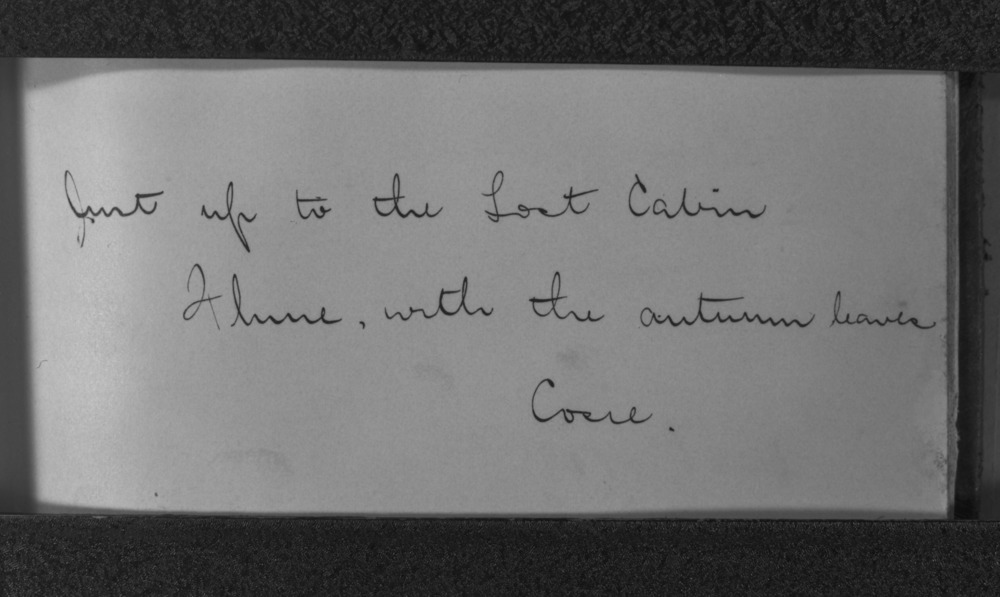 Just up to the Lost Cabin
with the autumn leaves